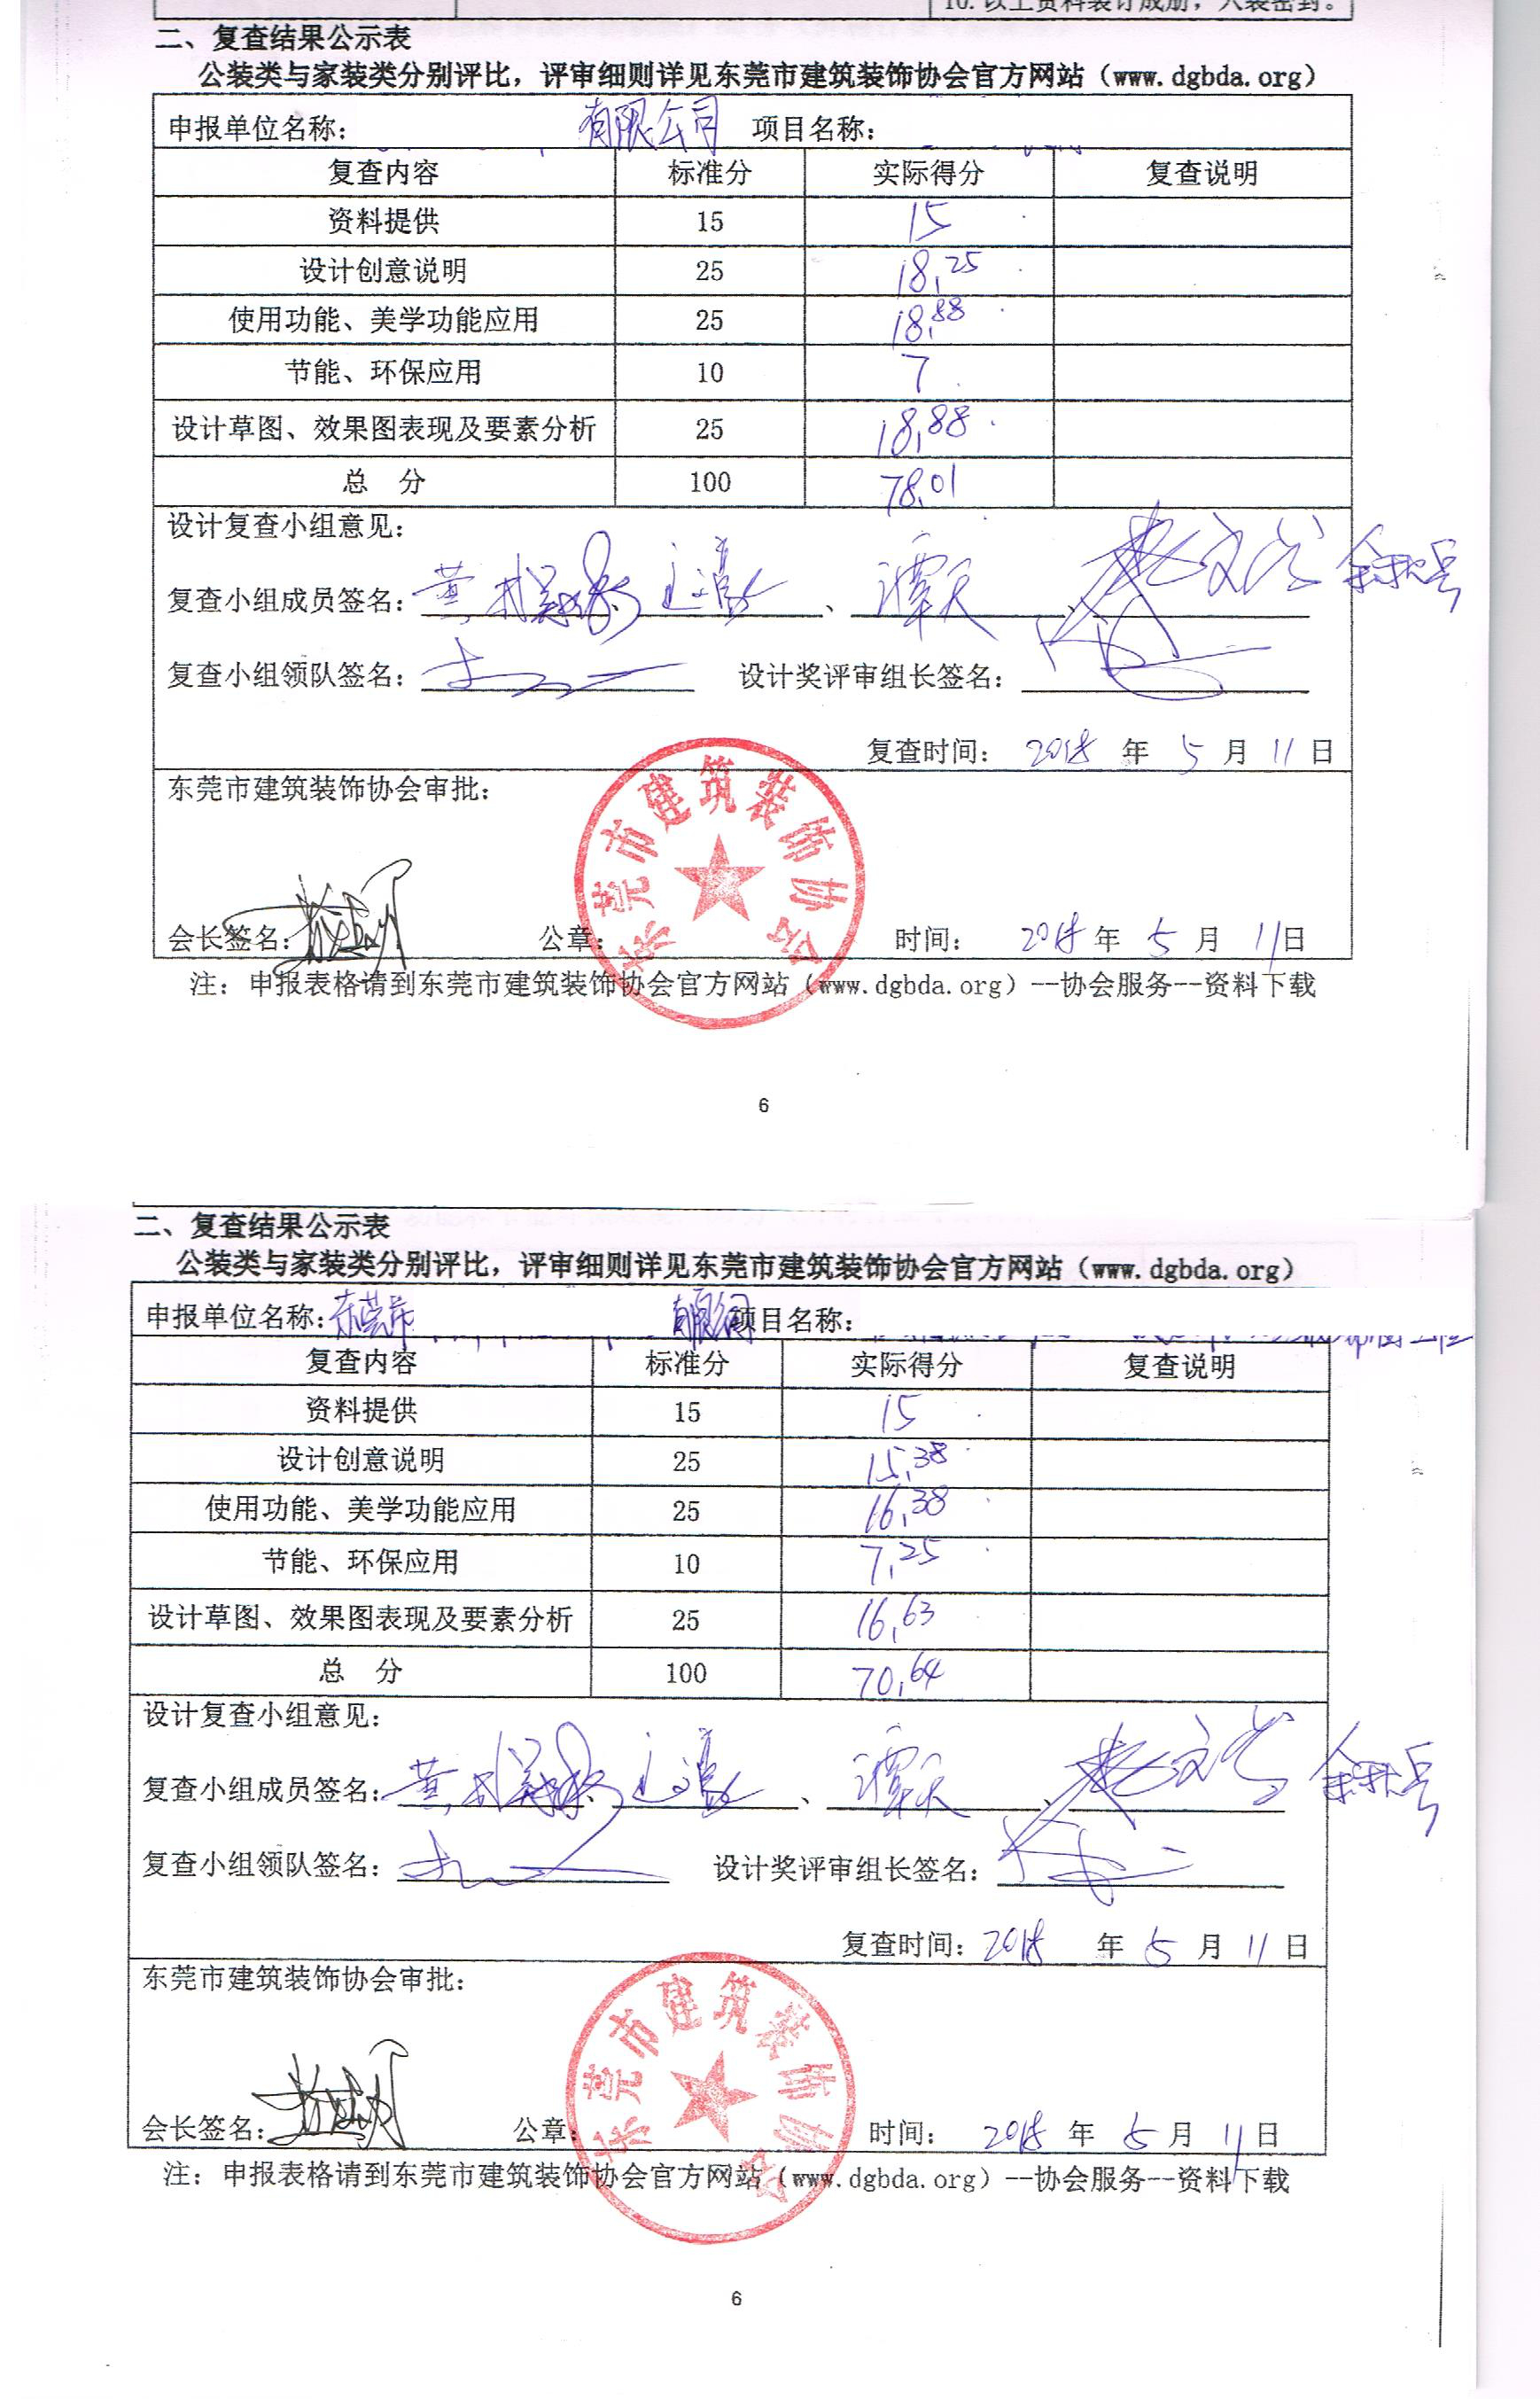 10.以上资料装订成册，入袋密封。
二、复查结果公示表
公装类与家装类分别评比，评审细则详见东莞市建筑装饰协会官方网站（www.dgbda.org）
申报单位名称： 有限公司 项目名称：
复查内容 标准分 实际得分 复查说明
资料提供 15 15
设计创意说明 25 18.25
使用功能、美学功能应用 25 18.88
节能、环保应用 10 7
设计草图、效果图表现及要素分析 25 18.88
总 分 100 78.01
设计复查小组意见：
复查小组成员签名： 、 、谭天 、
复查小组领队签名： 设计奖评审组长签名：
复查时间： 2018 年 5 月 11 日
东莞市建筑装饰协会审批：
东莞市建筑装饰协会
会长签名： 公章： 时间： 2018 年 5 月 11日
注：申报表格请到东莞市建筑装饰协会官方网站（www.dgbda.org）--协会服务--资料下载
6
二、复查结果公示表
公装类与家装类分别评比，评审细则详见东莞市建筑装饰协会官方网站（www.dgbda.org）
申报单位名称：东莞市 有限公司 项目名称：
复查内容 标准分 实际得分 复查说明
资料提供 15 15
设计创意说明 25 15.38
使用功能、美学功能应用 25 16.38
节能、环保应用 10 7.25
设计草图、效果图表现及要素分析 25 16.63
总 分 100 70.64
设计复查小组意见：
复查小组成员签名： 、 、谭天 、
复查小组领队签名： 设计奖评审组长签名：
复查时间：2018 年 5 月 11 日
东莞市建筑装饰协会审批：
东莞市建筑装饰协会
会长签名： 公章： 时间： 2018 年 5 月 11日
注：申报表格请到东莞市建筑装饰协会官方网站（www.dgbda.org）--协会服务--资料下载
6